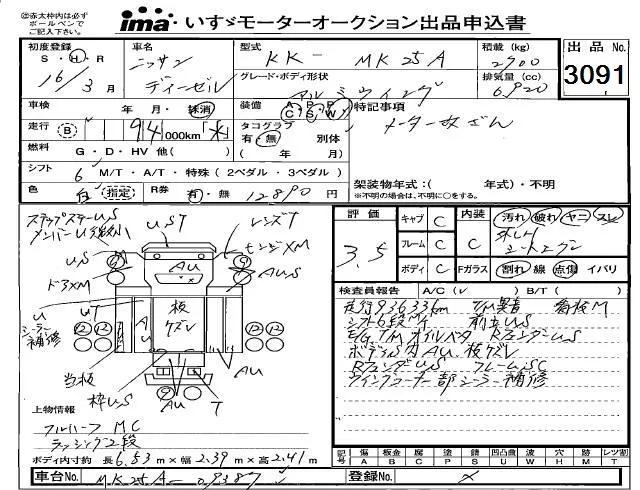 ◎太枠内は必ず
ボールペンで
ご記入下さい。
ima いすゞモーターオークション出品申込書
初度登録
S・H・R
16年3月
車名
ニッサン
ディーゼル
型式
KK-MK25A
グレード・ボディ形状
アルミウイング
積載(kg)
2700
排気量(cc)
6,920
出品No.
3091
車検 年・月・抹消
走行 (B) 94,000km 「*」
燃料 G・D・HV 他( )
シフト 6 M/T・A/T・特殊(2ペダル・3ペダル)
色 白 指定 R券 有・無 12890円
装備 A P P
C S W
タコグラフ
有・無 別体
( 年 月)
特記事項
メーター改ざん
架装物年式:( 年式)・不明
※不明の場合は、不明に○をする。
ステップステーUS
UST
レンズT
US
AU
AUS
ドアXM
U
UT
シーラー
補修
AU
板
ズレ
AU
当板
枠US
AU
T
上物情報
フルハーフ MC
ラッシング2段
ボディ内寸約 長6.53m×幅2.39m×高2.41m
評価
3.5
キャブ C
フレーム C
ボディ C
内装 C
Fガラス S
汚れ 破れ ヤニ スレ
シートエプロン
割れ 線 点傷 イバリ
検査員報告 A/C(✓) B/T( )
走行936336km T/M異音 看板M
シフト6段M/T 前立US
E/G,T/MオイルハタRフェンダーUS
ボディS内AU 板ズレ
RフェンダーUS フレームSC
ウイングコーナー部シーラー補修
記号 傷 板金 腐 塗 錆 凹凸曲 波 穴 跡 レツ割
A B C P S U W H M T
車台No. MK25A-09387
登録No. ×